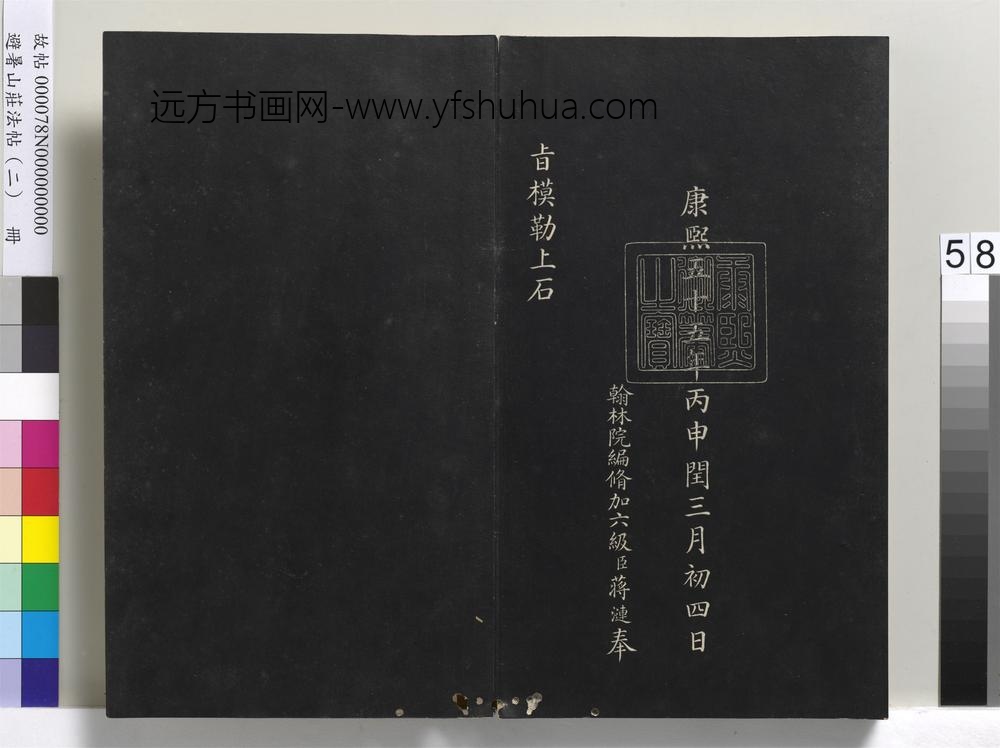 康熙五十五年丙申閏三月初四日
翰林院編脩加六級臣蔣漣奉
旨模勒上石
康熙
御筆
之寶
远方书画网-www.yfshuhua.com
故帖 000078N000000000
避暑山莊法帖（二） 冊
58